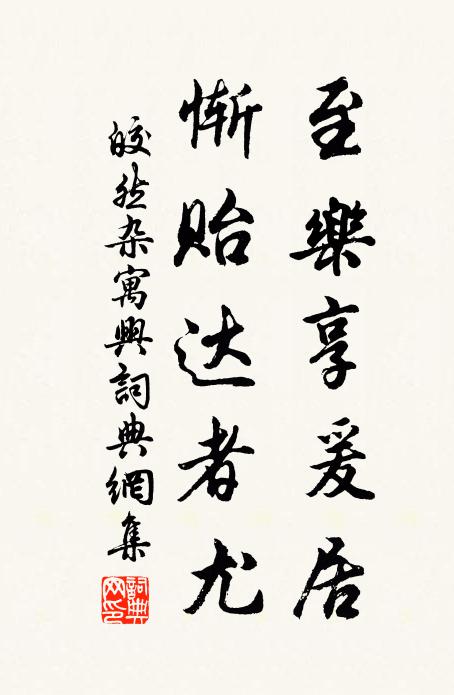 至樂享爰居
惭貽达者尤
皎然杂寓興詞典網集
詞典网印